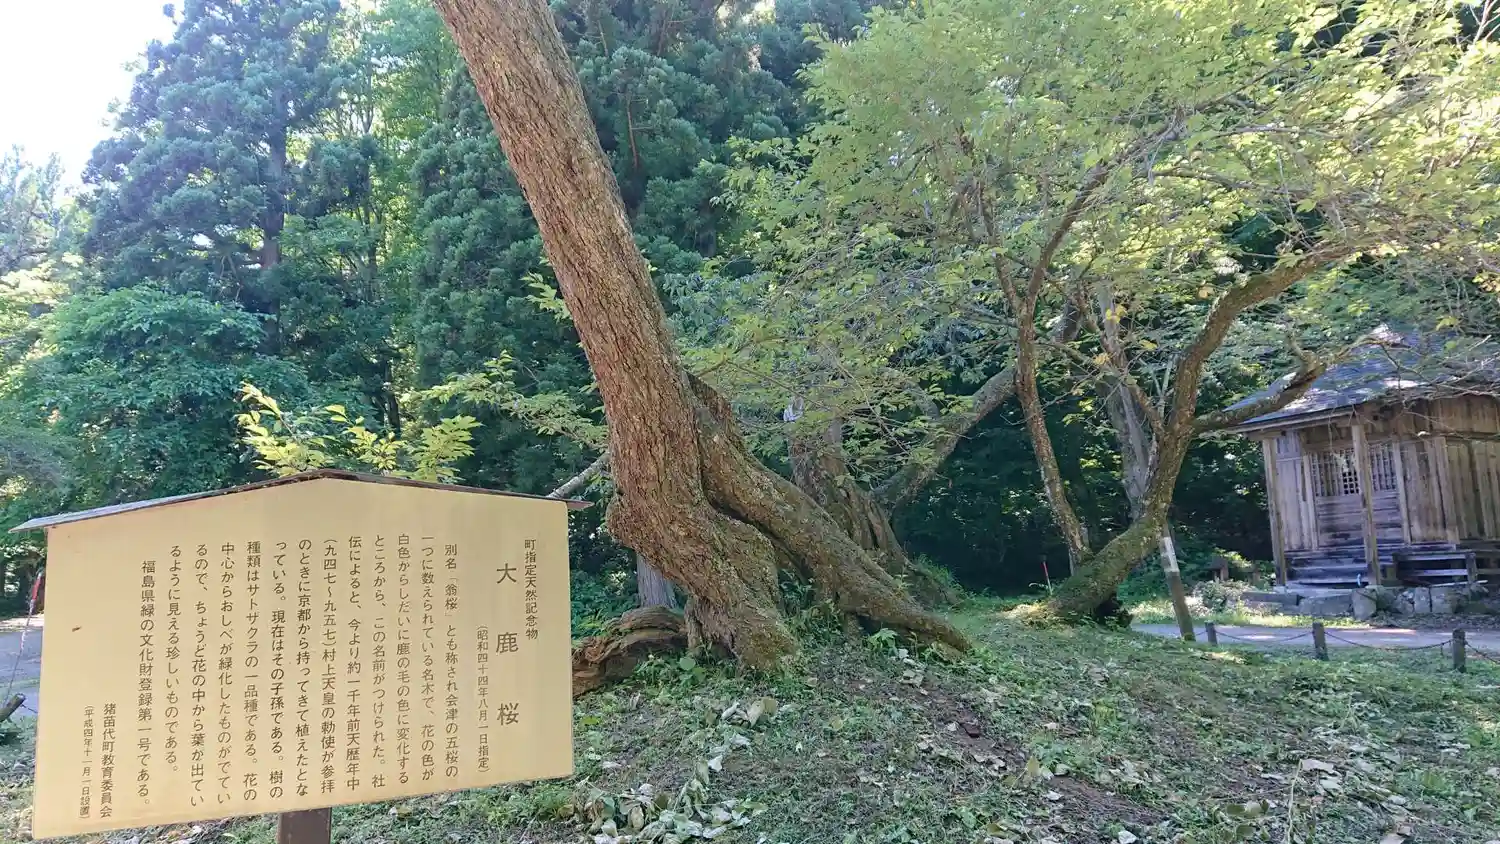 町指定天然記念物
大鹿桜
(昭和四十四年八月一日指定)
別名「翁桜」とも称され会津の五桜の
一つに数えられている名木で、花の色が
白色からしだいに鹿の毛の色に変化する
ところから、この名前がつけられた。社
伝によると、今より約一千年前天歴年中
(九四七〜九五七)村上天皇の勅使が参拝
のときに京都から持ってきて植えたとな
っている。現在はその子孫である。樹の
種類はサトザクラの一品種である。花の
中心からおしべが緑化したものがでてい
るので、ちょうど花の中から葉が出てい
るように見える珍しいものである。
福島県緑の文化財登録第一号である。
猪苗代町教育委員会
(平成四年十一月一日設置)